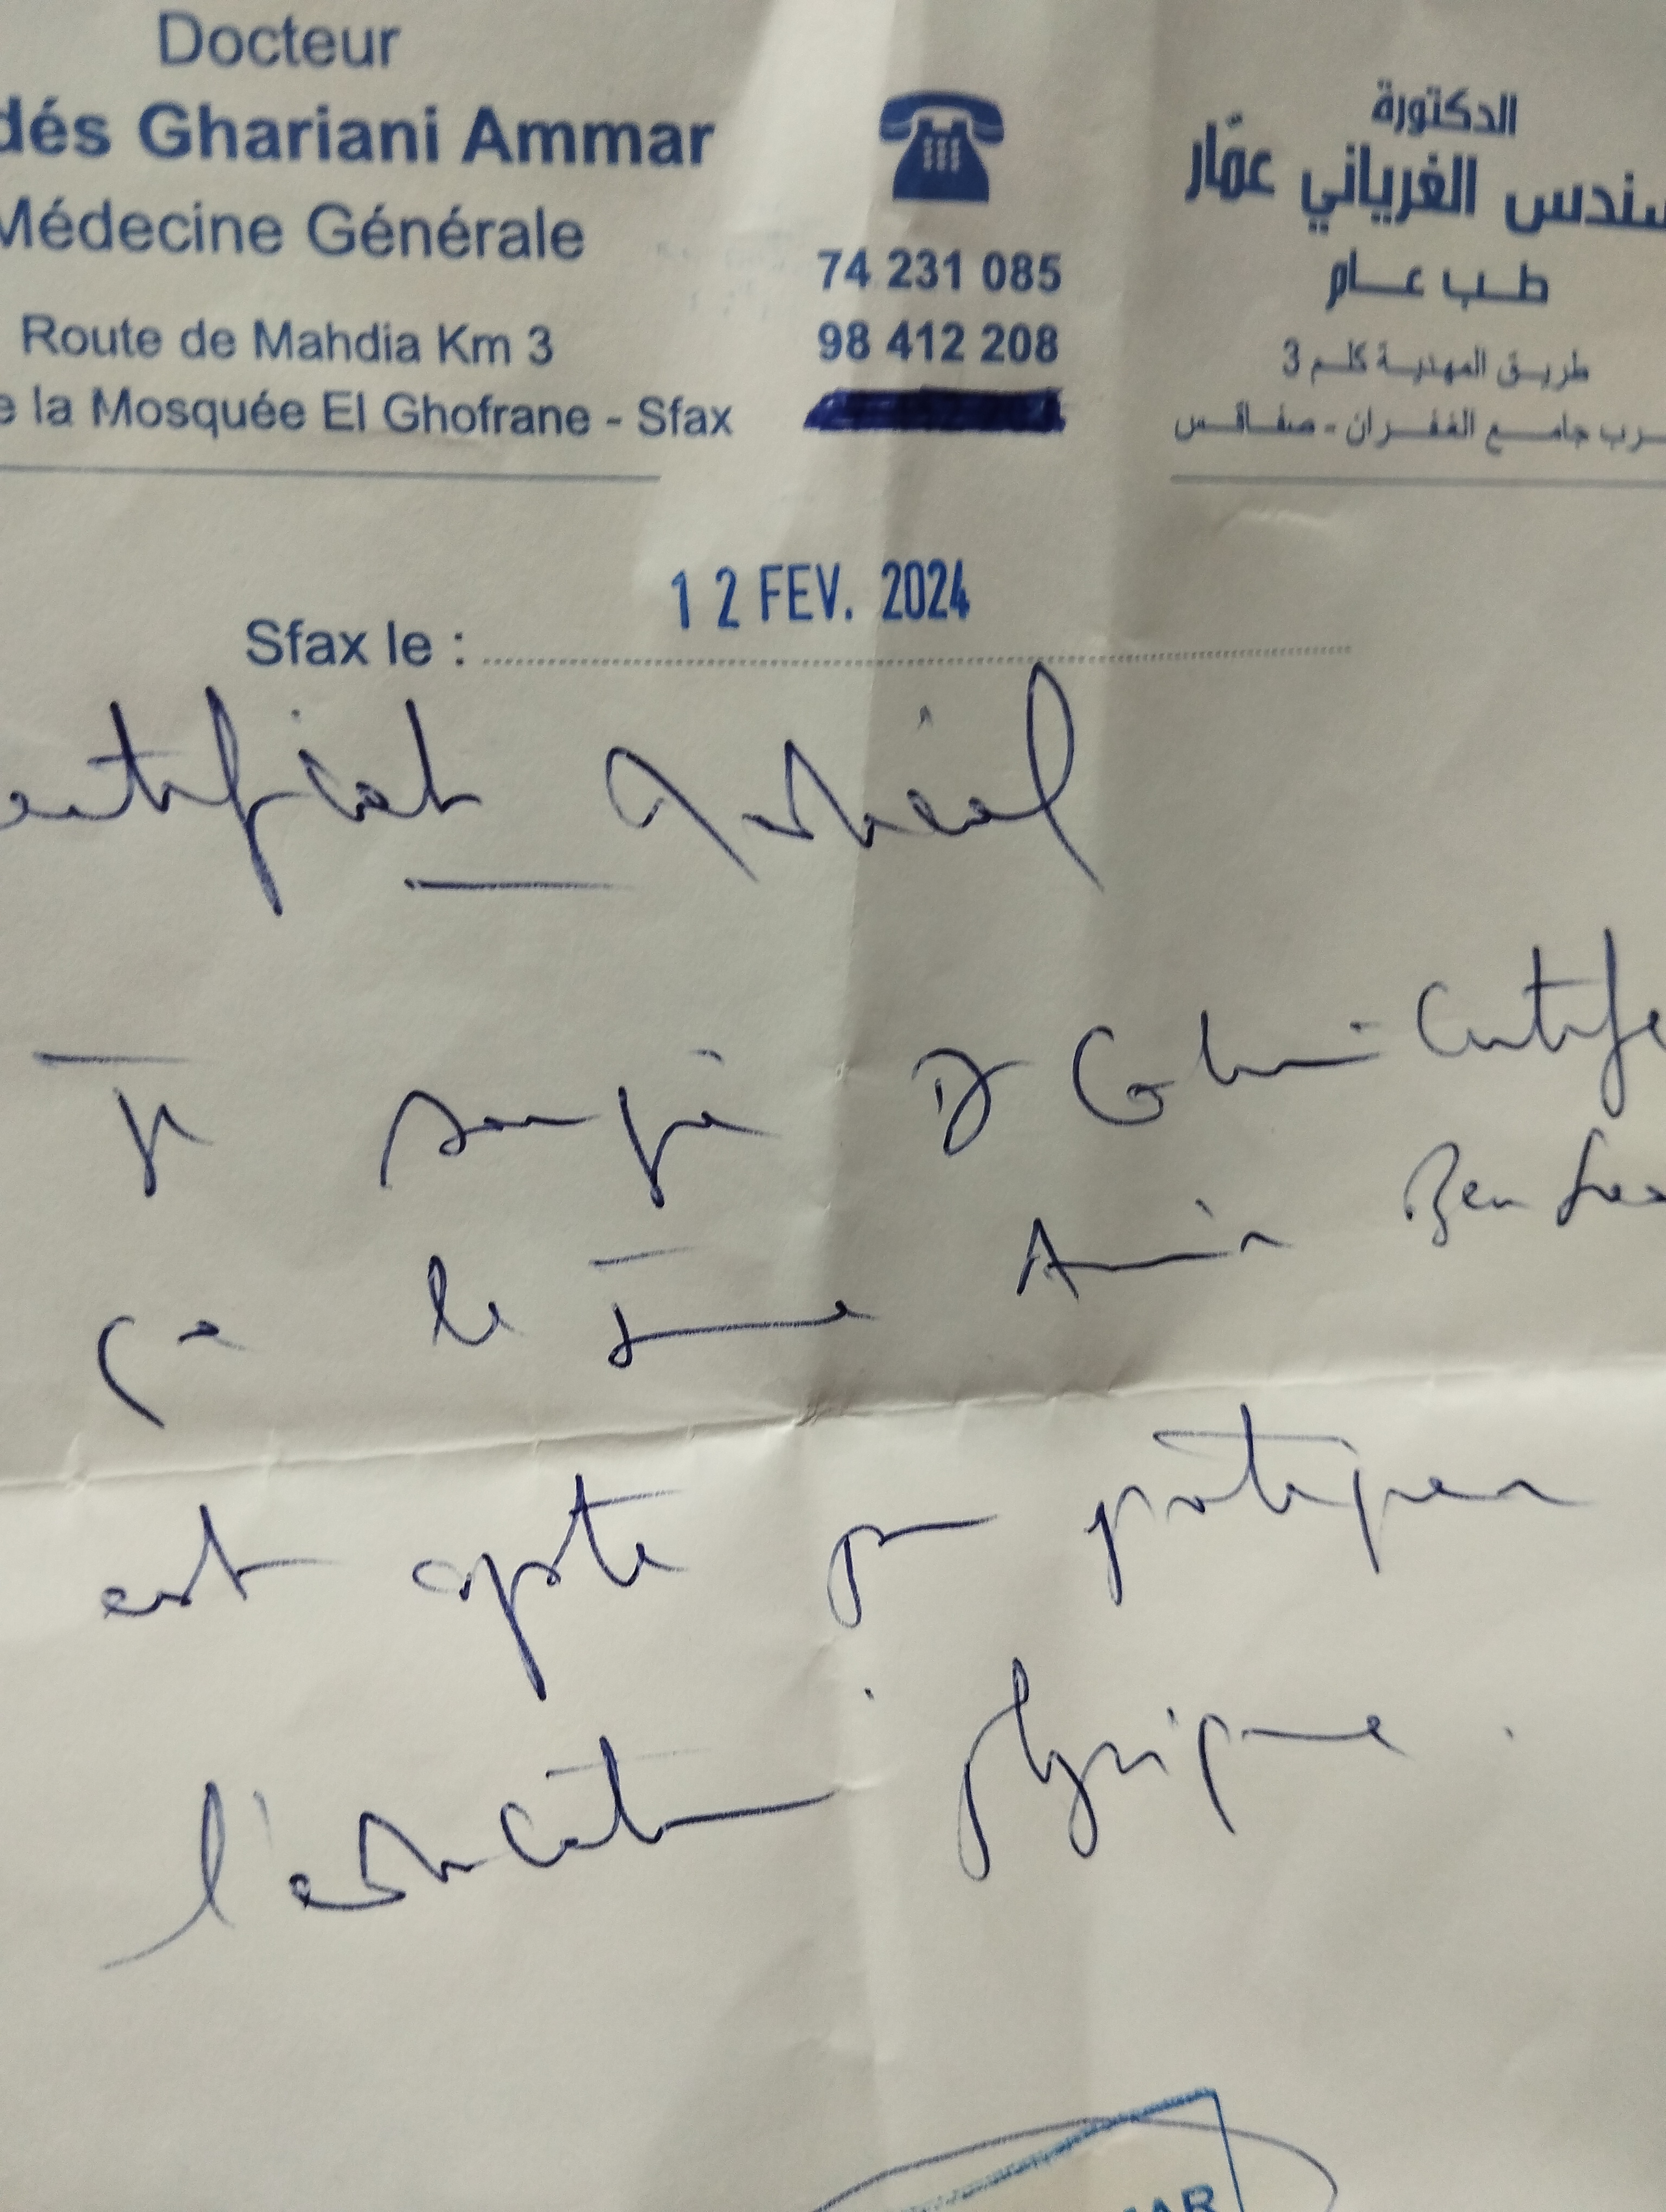 Docteur
dés Ghariani Ammar
Médecine Générale
Route de Mahdia Km 3
e la Mosquée El Ghofrane - Sfax
74 231 085
98 412 208
الدكتورة
سندس الغرياني عمّار
طب عام
طريق المهدية كلم 3
رب جامع الغفران - صفاقس
Sfax le :
12 FEV. 2024
ertificat Médical
Je soussigné Dr Certifie
que le jeune Amin Ben
est apte pour pratiquer
l'éducation physique.
MAR